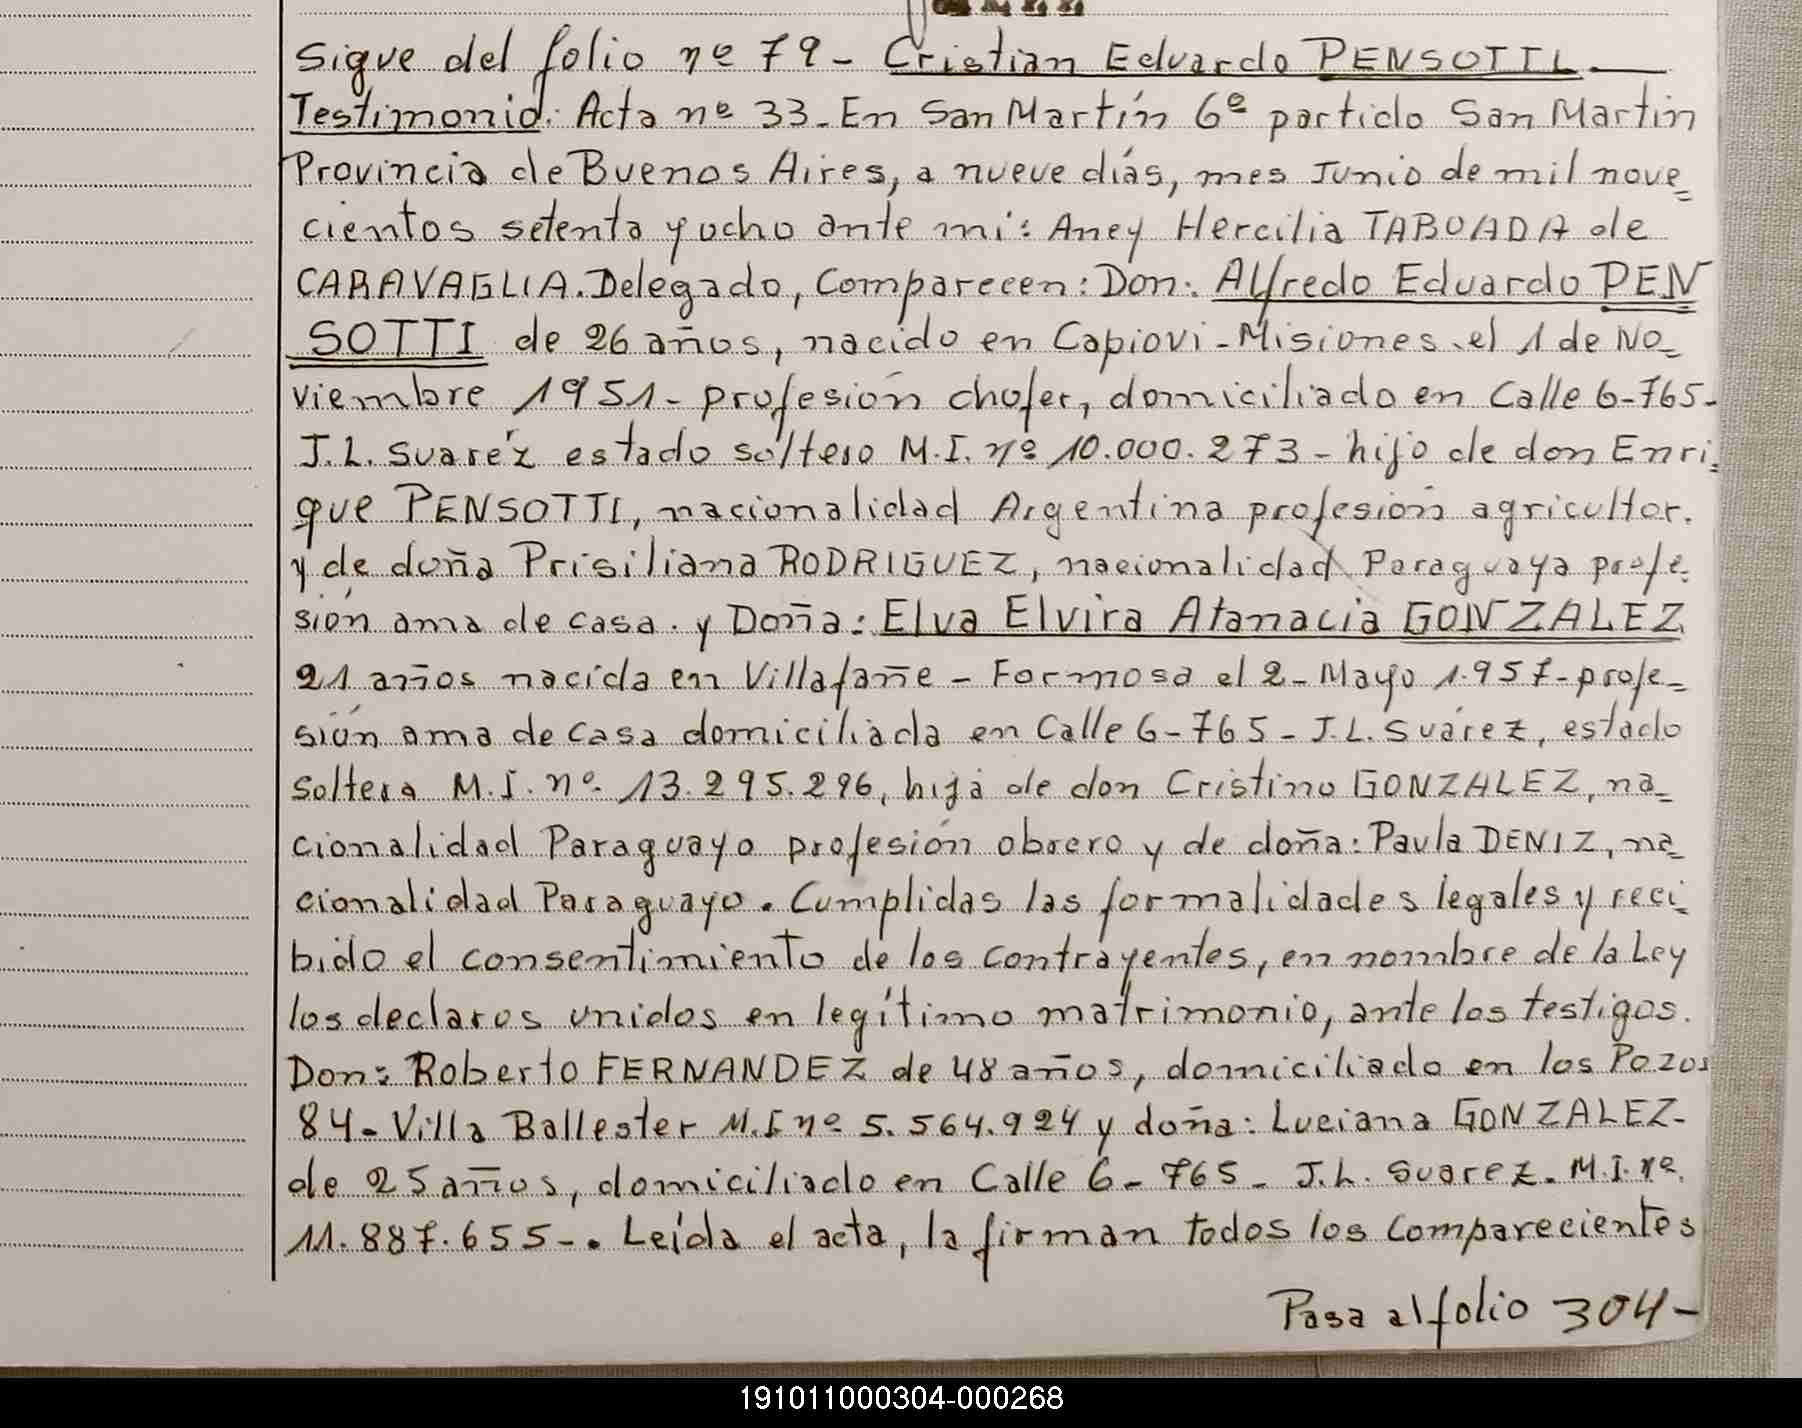 Sigue del folio nº 79- Cristian Eduardo PENSOTTI.
Testimonio: Acta nº 33. En San Martín 6º partido San Martin
Provincia de Buenos Aires, a nueve días, mes Junio de mil nove=
cientos setenta y ocho ante mi: Aney Hercilia TABOADA de
CARAVAGLIA. Delegado, Comparecen: Don: Alfredo Eduardo PEN
SOTTI de 26 años, nacido en Capiovi-Misiones el 1 de No-
viembre 1951- profesión chofer, domiciliado en Calle 6-765-
J.L. Suaréz estado soltero M.I. nº 10.000.273- hijo de don Enri=
que PENSOTTI, nacionalidad Argentina profesión agricultor.
y de doña Prisiliana RODRIGUEZ, nacionalidad Paraguaya profe=
sión ama de casa. y Doña: Elva Elvira Atanacia GONZALEZ
21 años nacida en Villafañe - Formosa el 2- Mayo 1.957- profe-
sión ama de casa domiciliada en Calle 6-765- J.L. Suárez, estado
Soltera M.I. nº 13.295.296, hija de don Cristino GONZALEZ, na-
cionalidad Paraguayo profesión obrero y de doña: Paula DENIZ, na-
cionalidad Paraguayo. Cumplidas las formalidades legales y reci=
bido el consentimiento de los contrayentes, en nombre de la Ley
los declaros unidos en legítimo matrimonio, ante los testigos.
Don: Roberto FERNANDEZ de 48 años, domiciliado en los Pozos
84- Villa Ballester M.I nº 5.564.924 y doña: Luciana GONZALEZ-
de 25 años, domiciliado en Calle 6- 765- J.L. Suarez. M.I. nº
11.887.655-. Leída el acta, la firman todos los comparecientes
Pasa al folio 304-
191011000304-000268